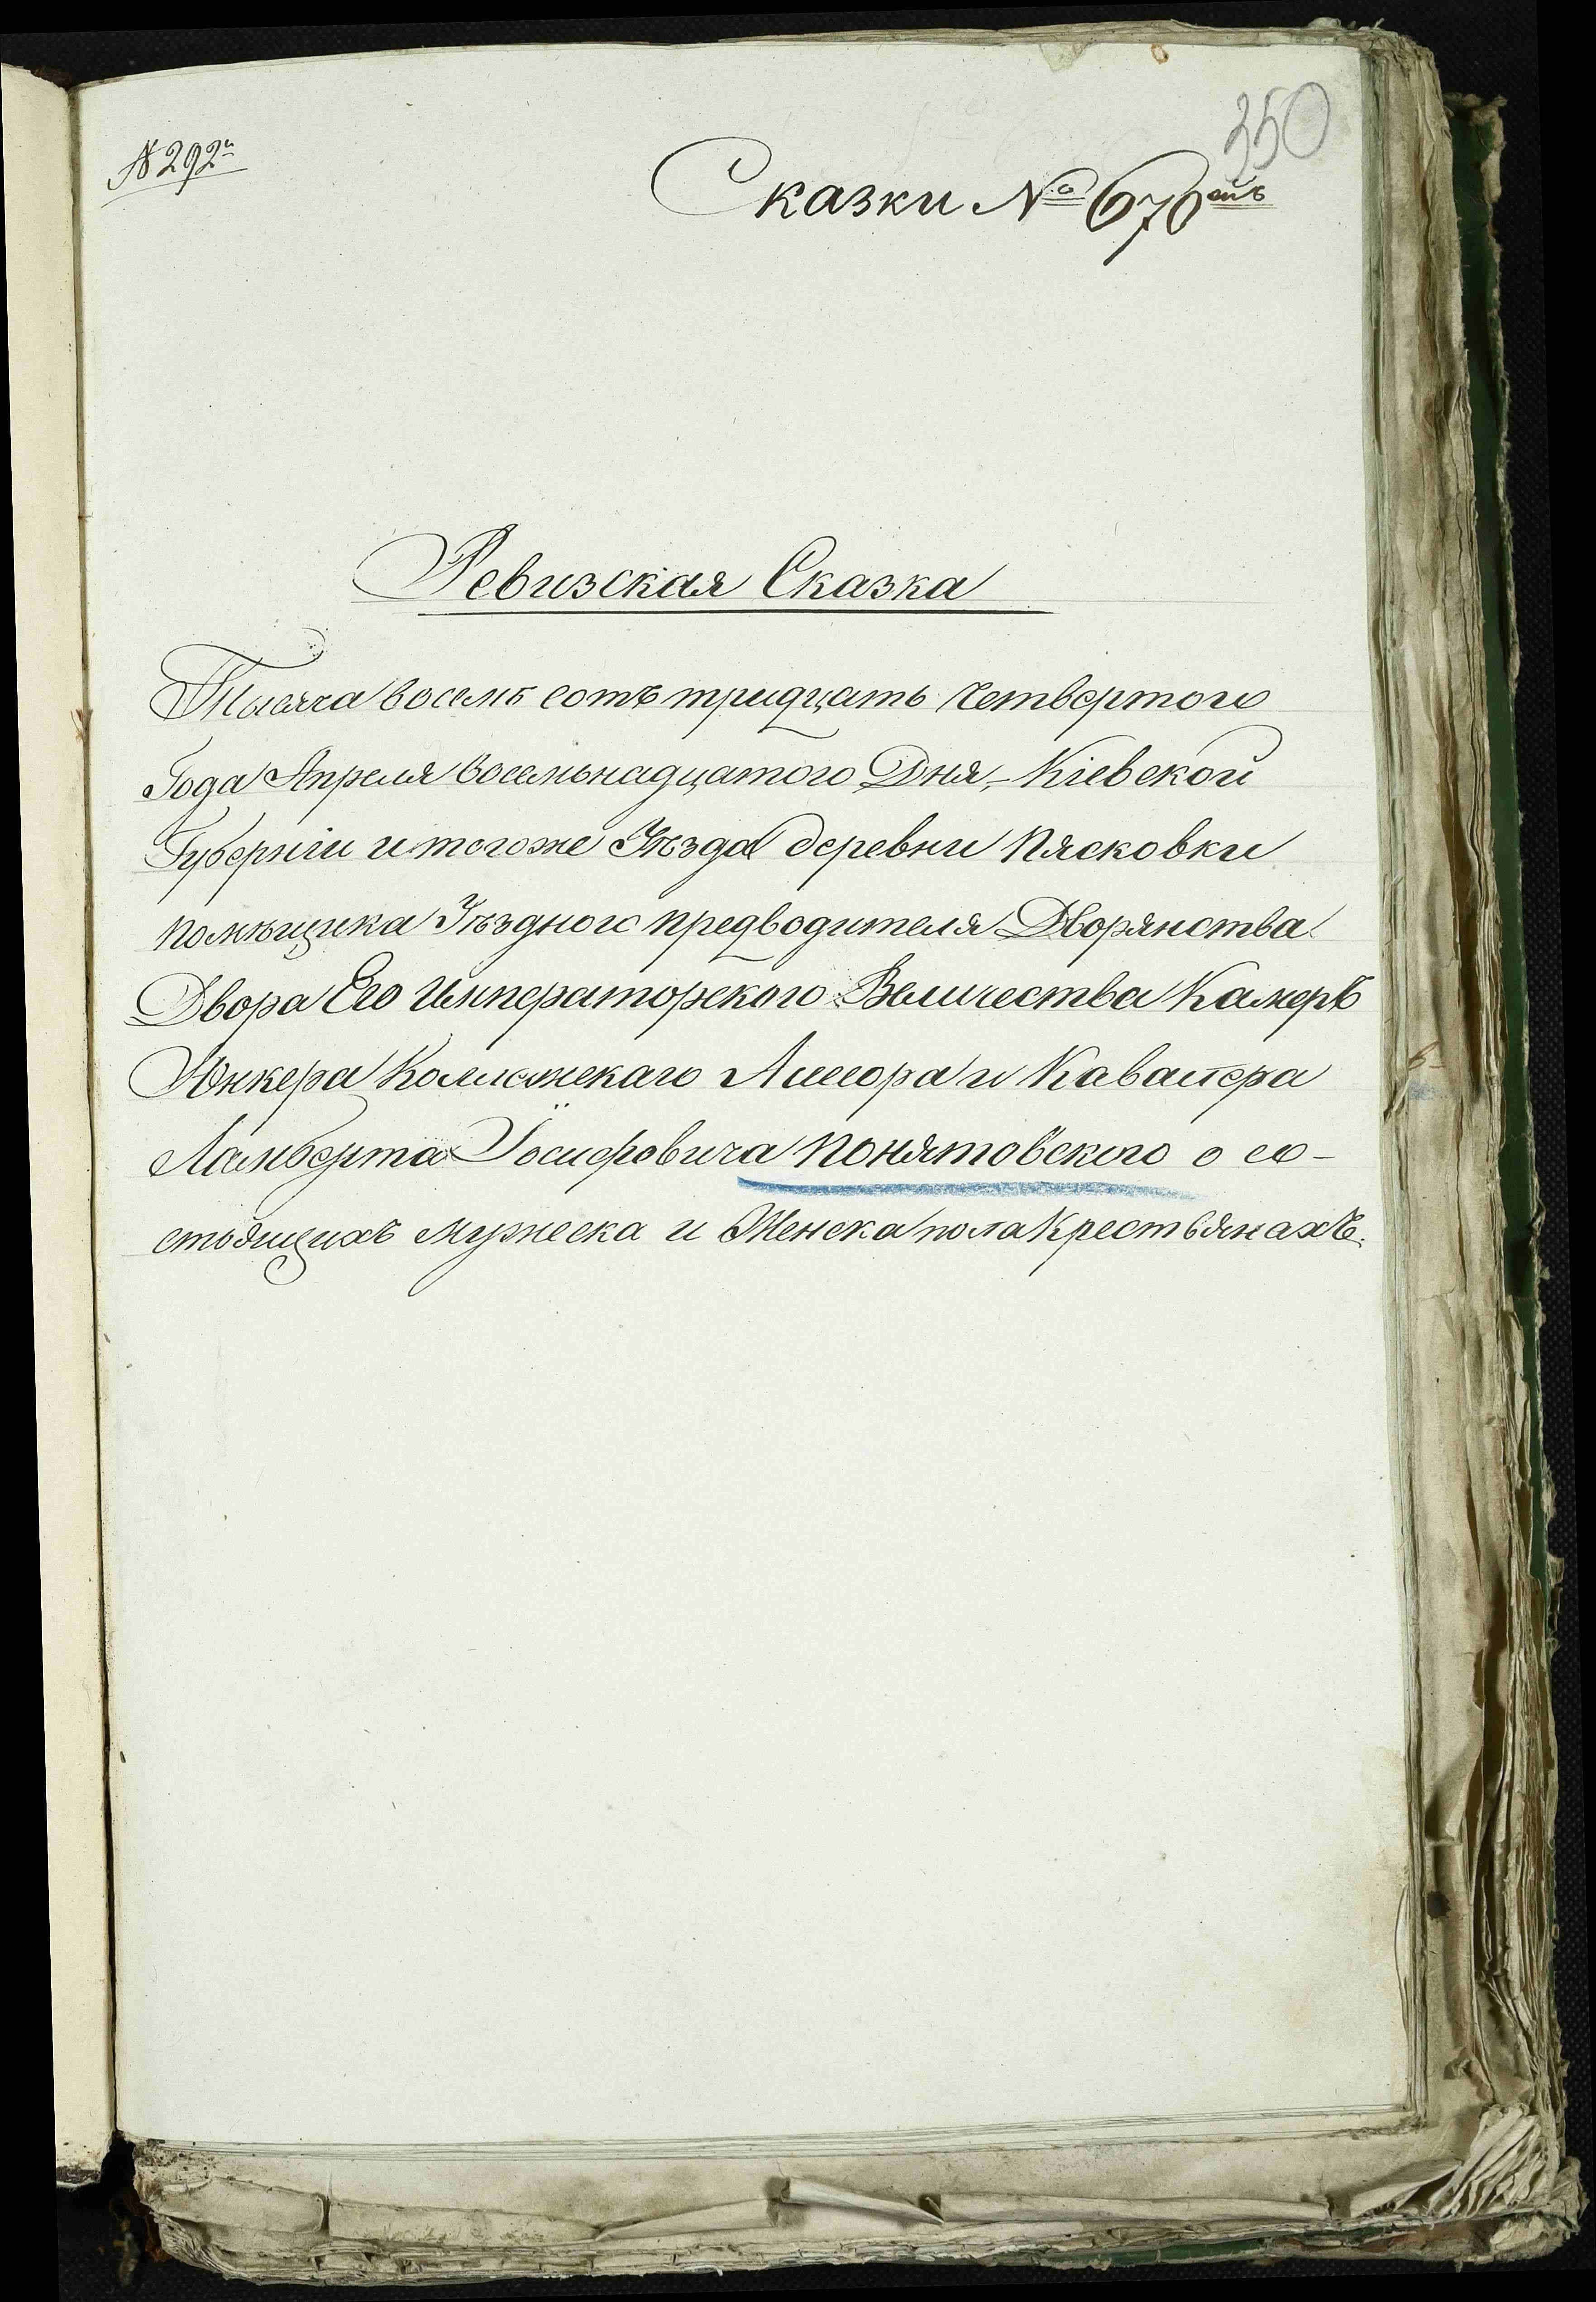 350
№ 292й
Сказки № 670
Ревизская Сказка
Тысяча восемь сотъ тридцать четвертого
Года Апреля восемьнадцатого Дня, - Кіевской
Губерніи и тогоже Уѣзда деревни Пясковки
помѣщика Уѣздного предводителя Дворянства
Двора Его Императорского Величества Камеръ
Юнкера Коллежскаго Ассесора и Кавалера
Ламберта Іосифовича Понятовского о со-
стоящихъ мужеска и Женска пола Крестьянахъ.